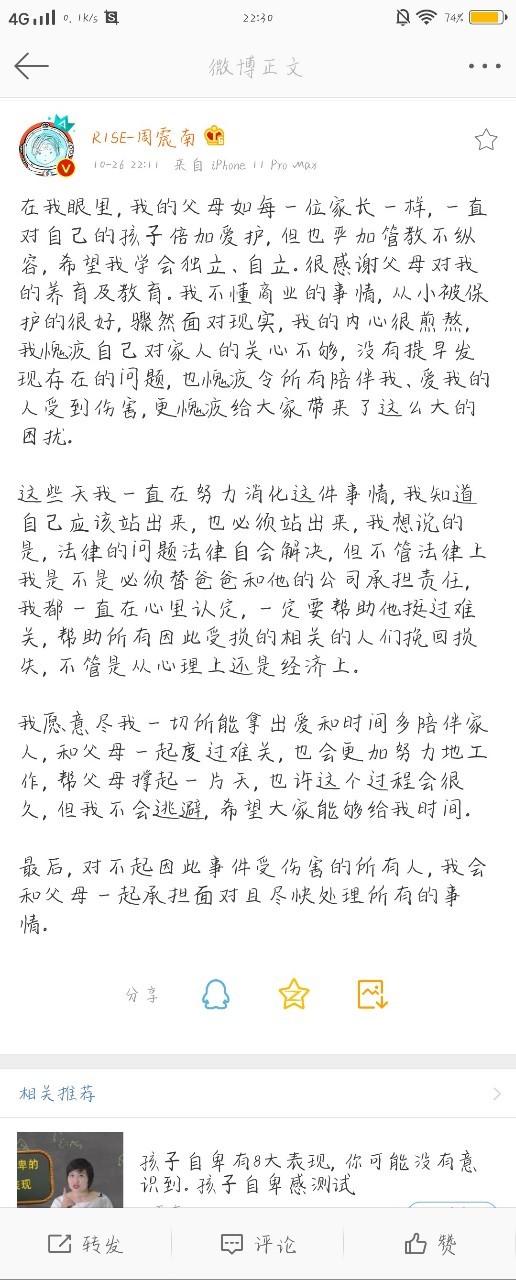 4G 0.1K/s 22:30 74%
微博正文
R1SE-周震南
10-26 22:11 来自 iPhone 11 Pro Max
在我眼里,我的父母如每一位家长一样,一直
对自己的孩子倍加爱护,但也严加管教不纵
容,希望我学会独立、自立.很感谢父母对我
的养育及教育.我不懂商业的事情,从小被保
护的很好,骤然面对现实,我的内心很煎熬,
我愧疚自己对家人的关心不够,没有提早发
现存在的问题,也愧疚令所有陪伴我、爱我的
人受到伤害,更愧疚给大家带来了这么大的
困扰.
这些天我一直在努力消化这件事情,我知道
自己应该站出来,也必须站出来,我想说的
是,法律的问题法律自会解决,但不管法律上
我是不是必须替爸爸和他的公司承担责任,
我都一直在心里认定,一定要帮助他挺过难
关,帮助所有因此受损的相关的人们挽回损
失,不管是从心理上还是经济上.
我愿意尽我一切所能拿出爱和时间多陪伴家
人,和父母一起度过难关,也会更加努力地工
作,帮父母撑起一片天,也许这个过程会很
久,但我不会逃避,希望大家能够给我时间.
最后,对不起因此事件受伤害的所有人,我会
和父母一起承担面对且尽快处理所有的事
情.
分享
相关推荐
卑的
表现
孩子自卑有8大表现,你可能没有意
识到.孩子自卑感测试
转发 评论 赞